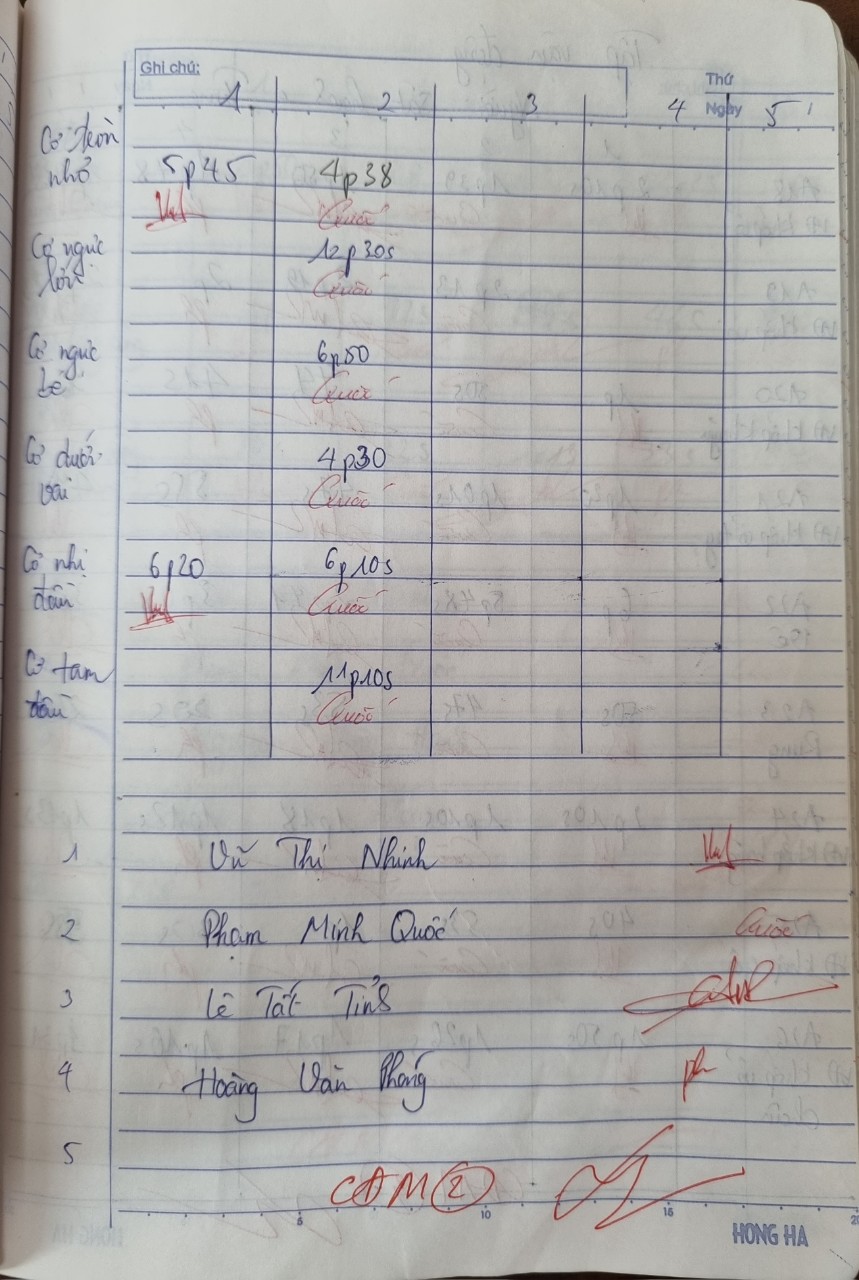 Ghi chú:
Thứ
Ngày
1. 2 3 4 5
Cơ tròn
nhỏ
5p45 4p38
Quốc
Cơ ngực
lớn
12p30s
Quốc
Cơ ngực
bé
6p50
Quốc
Cơ dưới
vai
4p30
Quốc
Cơ nhị
đầu
6p20 6p10s
Quốc
Cơ tam
đầu
11p10s
Quốc
1 Vũ Thị Nhinh
2 Phạm Minh Quốc Quốc
3 Lê Tất
4 Hoàng Văn Phong ph
5
CAM 2
5 10 15 20
HONG HA